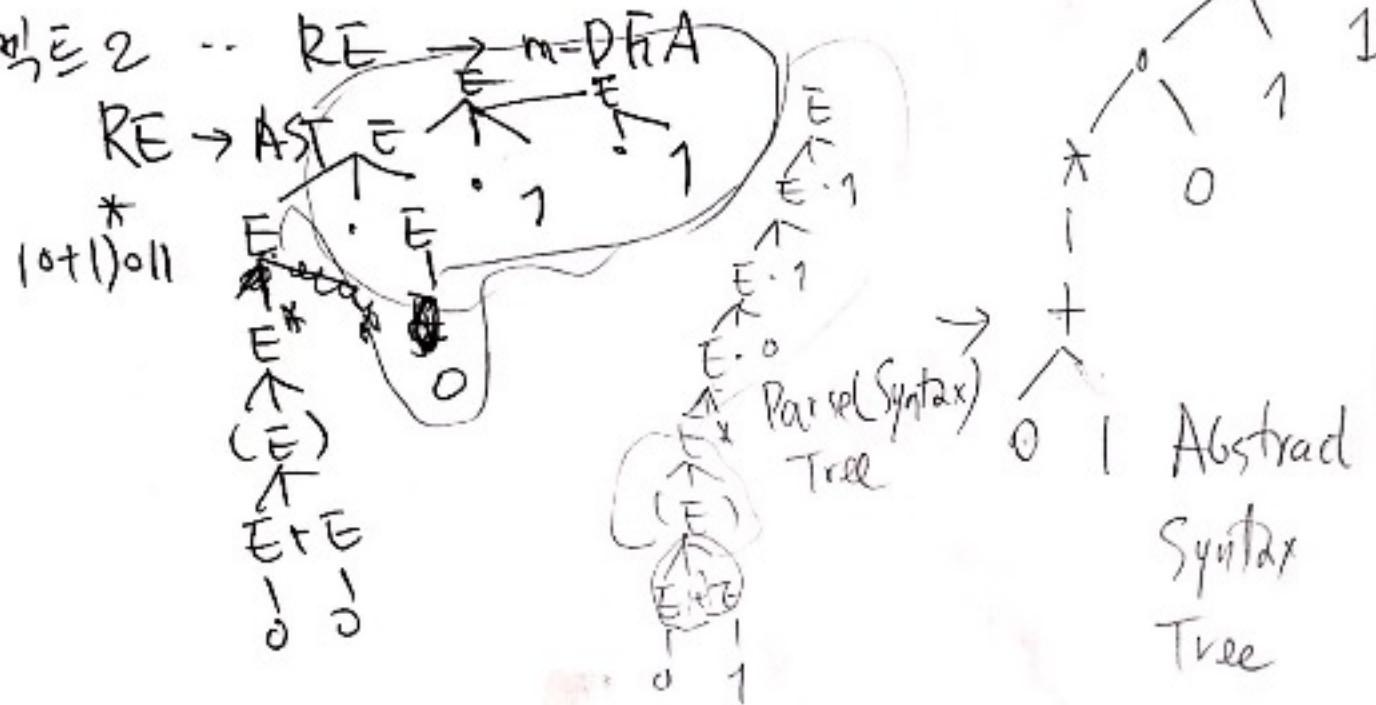 젝트 2 .. RE → m-DFA
RE → AST
(0+1)*011
E
E E
. 1 . 1
E . E
E*
0
(E)
E+E
0 0
E
E . 1
E . 1
E . 0
E*
(E)
E+E
0 1
Parse(Syntax)
Tree
→
1
. 1
* 0
+
0 1
Abstract
Syntax
Tree